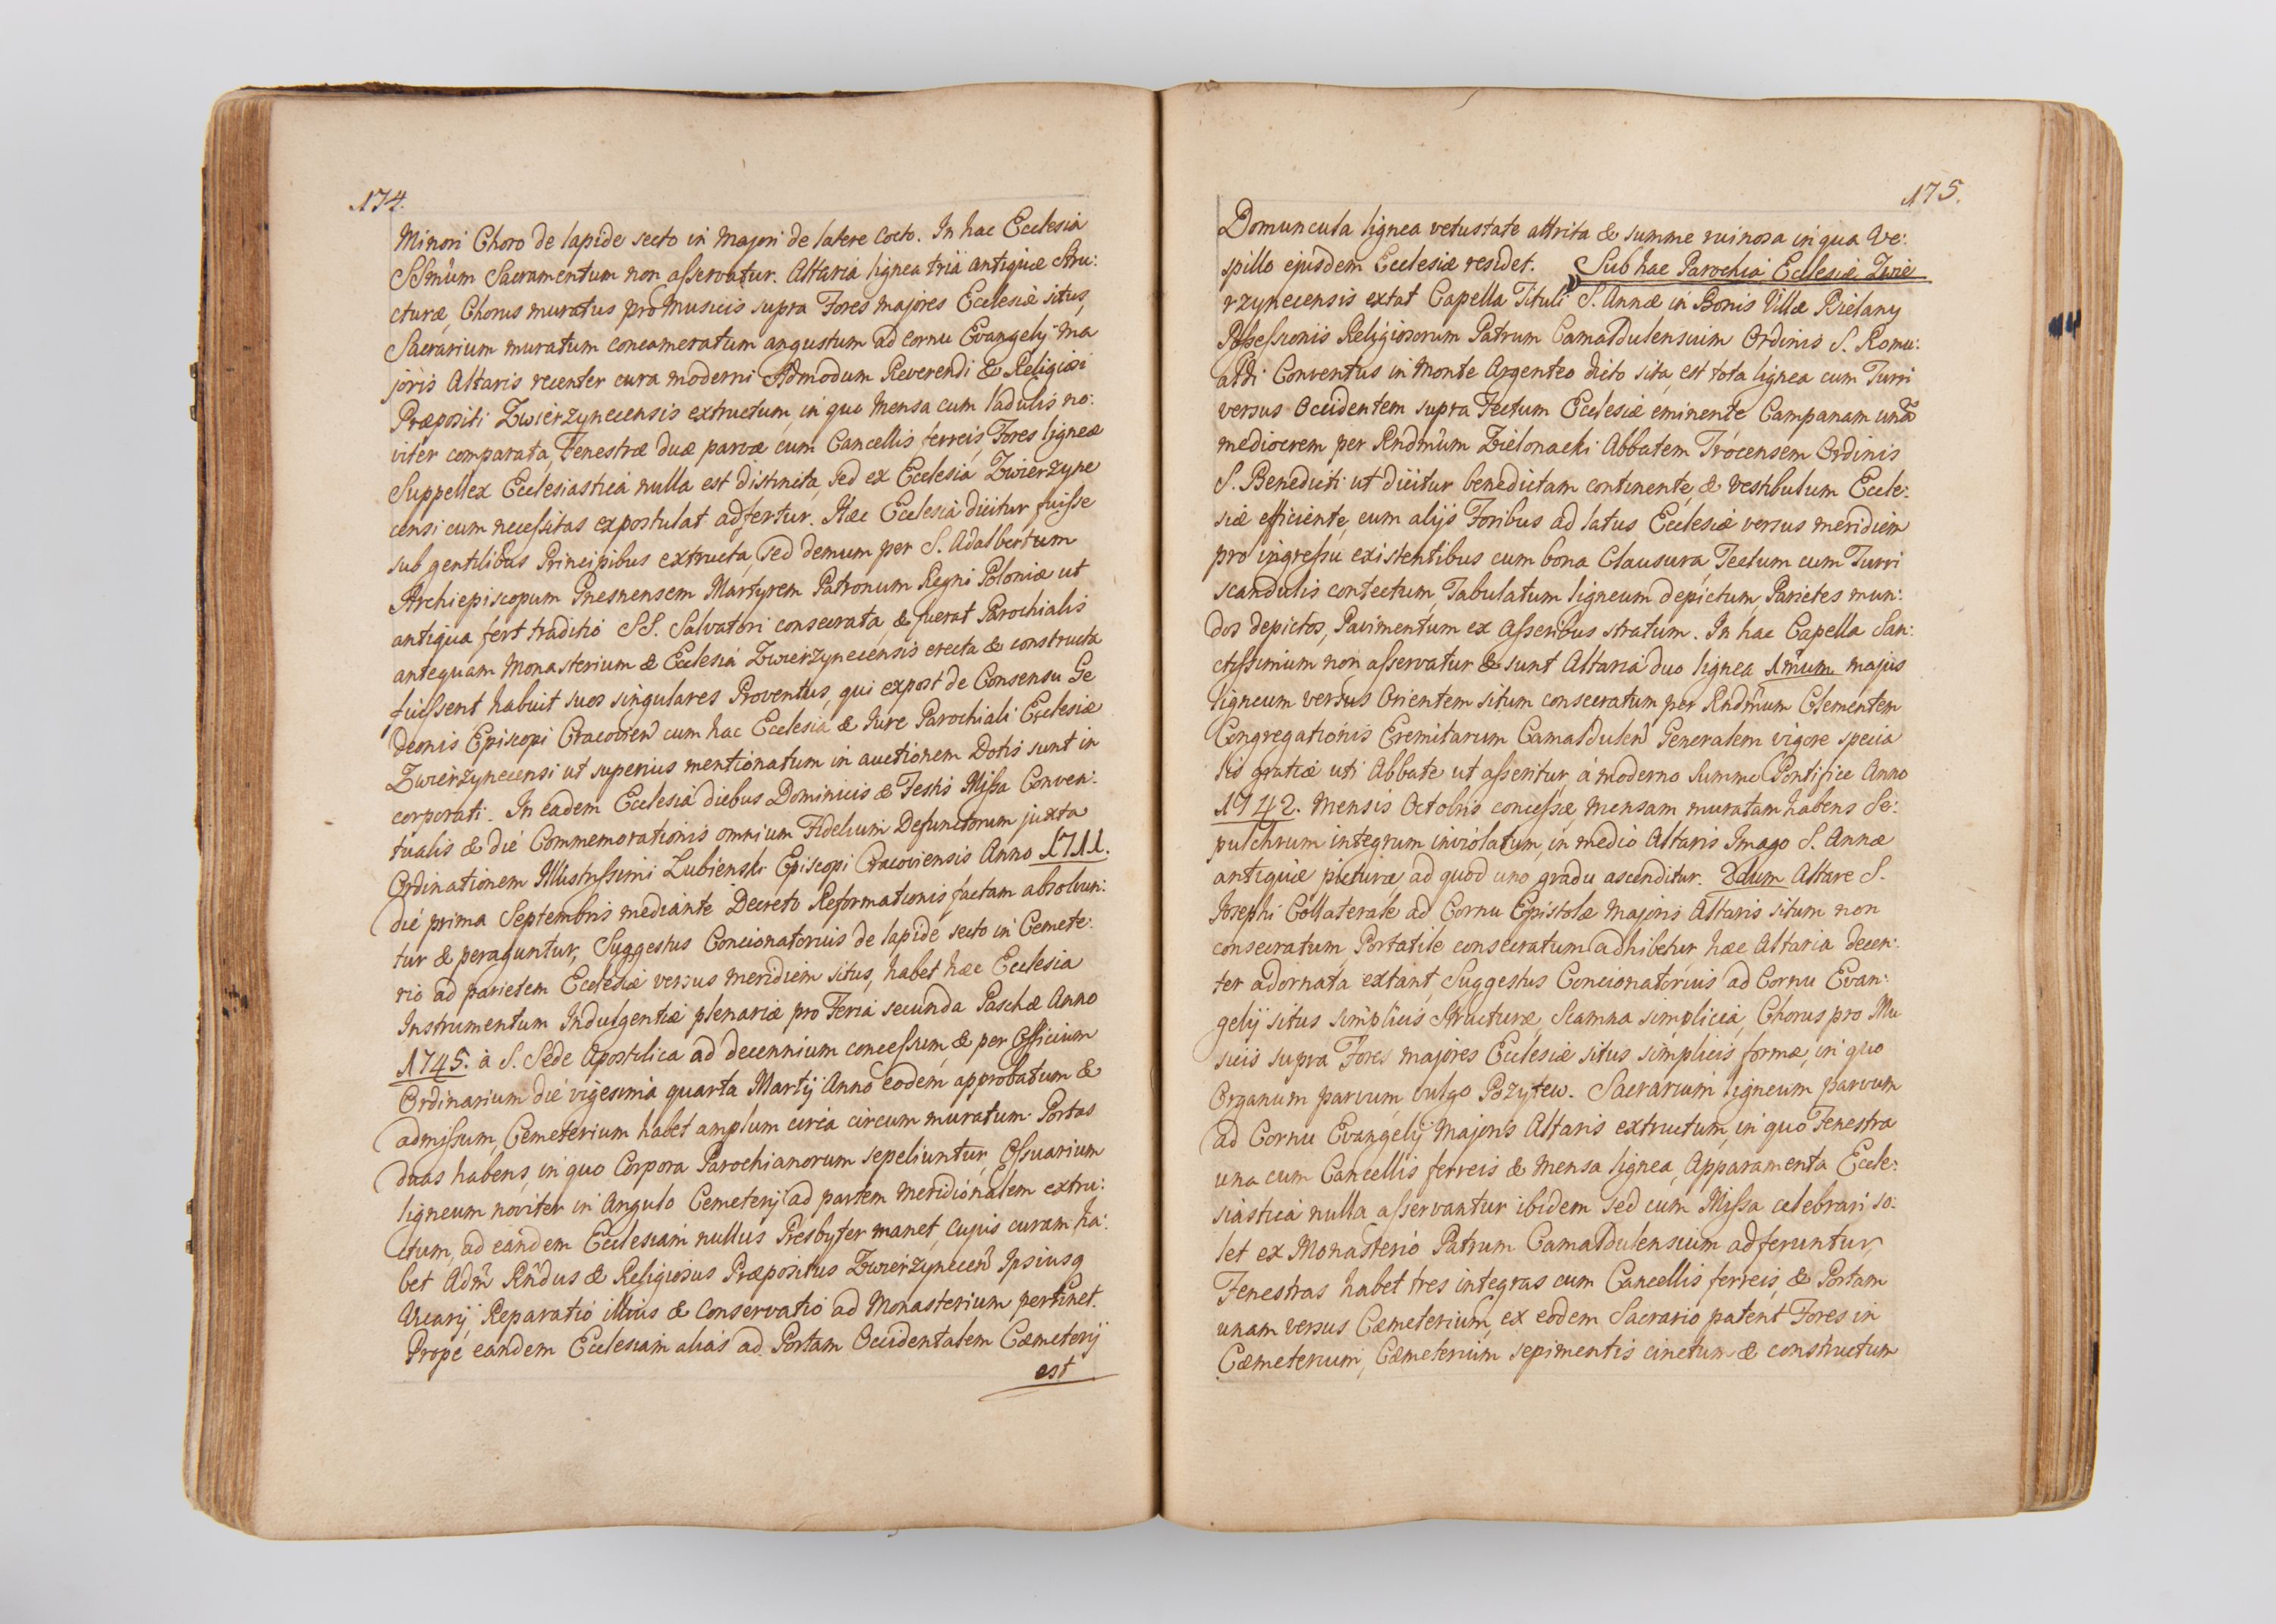 174.
Minori Choro de lapide secto in Majori de latere Cocto. In hac Ecclesia
SSmum Sacramentum non asservatur. Altaria lignea tria antiquæ stru:
cturæ, Chorus muratus pro Musicis supra Fores majores Ecclesiæ situs,
Sacrarium muratum concameratum angustum ad cornu Evangelÿ Ma
joris Altaris recenter cura moderni Admodum Reverendi & Religiosi
Præpositi Zwierzynecensis extructum, in quo Mensa cum ladulis no:
viter comparata, Fenestræ duæ parvæ cum Cancellis ferreis, Fores ligneæ
Suppellex Ecclesiastica nulla est distincta, sed ex Ecclesia Zwierzyne
censi cum necessitas expostulat adfertur. Hæc Ecclesia dicitur fuisse
sub gentilibus Principibus extructa, sed demum per S. Adalbertum
Archiepiscopum Gnesnensem Martyrem Patronum Regni Poloniæ ut
antiqua fert traditio SS. Salvatori consecrata, & fuerat Parochialis
antequam Monasterium & Ecclesia Zwierzynecensis erecta & constructa
fuissent habuit suos singulares Proventus, qui expost de Consensu Ge
deonis Episcopi Cracovien cum hac Ecclesia & Jure Parochiali Ecclesiæ
Zwierzynecensi ut superius mentionatum in auctionem Dotis sunt in
corporati. In eadem Ecclesia diebus Dominicis & Festis Missa Conven:
tualis & die Commemorationis omnium Fidelium Defunctorum juxta
Ordinationem Illustrissimi Lubienski Episcopi Cracoviensis Anno 1711.
die prima Septembris mediante Decreto Reformationis factam absolvun:
tur & peraguntur, Suggestus Concionatorius de lapide secto in Cemete:
rio ad parietem Ecclesiæ versus meridiem situs, habet hæc Ecclesia
Instrumentum Indulgentiæ plenariæ pro Feria secunda Paschæ Anno
1745. à S. Sede Apostolica ad decennium concessum, & per Officium
Ordinarium die vigesima quarta Martÿ Anno eodem approbatum &
admissum, Cemeterium habet amplum circa circum muratum Portas
duas habens, in quo Corpora Parochianorum sepeliuntur, Ossuarium
ligneum noviter in Angulo Cemeterÿ ad partem Meridionalem extru:
ctum, ad eandem Ecclesiam nullus Presbyter manet, Cujus curam ha:
bet Adm Rndus & Religiosus Præpositus Zwierzynecen Ipsiusq
Vicarÿ, Reparatio illius & Conservatio ad Monasterium pertinet.
Prope eandem Ecclesiam alias ad Portam Occidentalem Cæmeterÿ
est
175.
Domuncula lignea vetustate attrita & summe ruinosa in qua Ve:
spillo ejusdem Ecclesiæ residet. Sub hac Parochia Ecclesiæ Zwie
rzynecensis extat Capella Tituli S. Annæ in Bonis Villæ Bielany
Possessionis Religiosorum Patrum Camaldulensium Ordinis S. Romu:
aldi Conventus in Monte Argenteo dicto sita, est tota lignea cum Turri
versus Occidentem supra Tectum Ecclesiæ eminente, Campanam unã
mediocrem per Rndmum Zielonacki Abbatem Trocensem Ordinis
S. Benedicti ut dicitur benedictam continente, & Vestibulum Eccle:
siæ efficiente, cum alijs Foribus ad latus Ecclesiæ versus meridiem
pro ingressu existentibus cum bona Clausura, Tectum cum Turri
scandulis contectum, Tabulatum ligneum depictum, Parietes mun:
dos depictos, Pavimentum ex Asseribus stratum. In hac Capella San:
ctissimum non asservatur & sunt Altaria duo lignea 1mum majus
ligneum versus Orientem situm consecratum per Rndmum Clementem
Congregationis Eremitarum Camaldulen Generalem vigore specia
lis gratiæ uti Abbate ut asseritur, à moderno Summo Pontifice Anno
1742. Mensis Octobris concessæ, mensam muratam habens Se:
pulchrum integrum inviolatum, in medio Altaris Imago S. Annæ
antiquæ picturæ, ad quod uno gradu ascenditur. 2dum Altare S.
Josephi Collaterale ad Cornu Epistolæ Majoris Altaris situm non
consecratum, Portatile consecratum adhibetur, hæc Altaria decen:
ter adornata extant, Suggestus Concionatorius ad Cornu Evan:
gelÿ situs simplicis structuræ, Scamna simplicia, Chorus pro Mu
sicis supra Fores majores Ecclesiæ situs simplicis formæ, in quo
Organum parvum vulgo Pozytew. Sacrarium ligneum parvum
ad Cornu Evangelÿ Majoris Altaris extructum, in quo Fenestra
una cum Cancellis ferreis & Mensa lignea, Apparamenta Eccle:
siastica nulla asservantur ibidem sed cum Missa celebrari so:
let ex Monasterio Patrum Camaldulensium adferuntur,
Fenestras habet tres integras cum Cancellis ferreis, & Portam
unam versus Cæmeterium, ex eodem Sacrario patent Fores in
Cæmeterium, Cæmeterium sepimentis cinctum & constructum